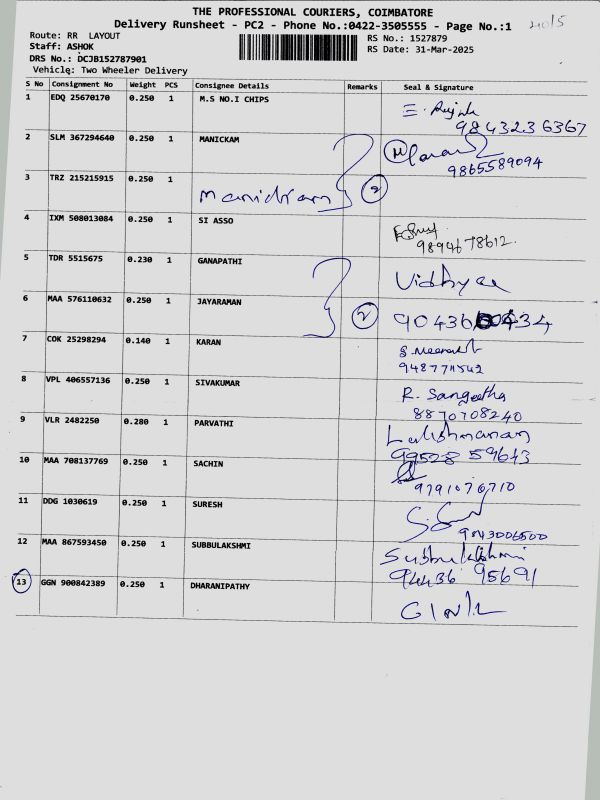 THE PROFESSIONAL COURIERS, COIMBATORE
Delivery Runsheet - PC2 - Phone No.:0422-3505555 - Page No.:1
Route: RR LAYOUT
RS No.: 1527879
Staff: ASHOK
RS Date: 31-Mar-2025
DRS No.: DCJB152787901
Vehicle: Two Wheeler Delivery
S No Consignment No Weight PCS Consignee Details Remarks Seal & Signature
1 EDQ 25670170 0.250 1 M.S NO.I CHIPS
9843236367
2 SLM 367294640 0.250 1 MANICKAM
9865589094
3 TRZ 215215915 0.250 1 Manickam 2
4 IXM 508013084 0.250 1 SI ASSO
9894678612.
5 TDR 5515675 0.230 1 GANAPATHI Vidhyaa
6 MAA 576110632 0.250 1 JAYARAMAN 2
7 COK 25298294 0.140 1 KARAN
8 VPL 406557136 0.250 1 SIVAKUMAR R. Sangeetha
8870708240
9 VLR 2482250 0.280 1 PARVATHI Lakshmanan
99528 59643
10 MAA 708137769 0.250 1 SACHIN
9791076710
11 DDG 1030619 0.250 1 SURESH
9843006500
12 MAA 867593450 0.250 1 SUBBULAKSHMI Subbulakshmi
94436 95691
13 GGN 900842389 0.250 1 DHARANIPATHY